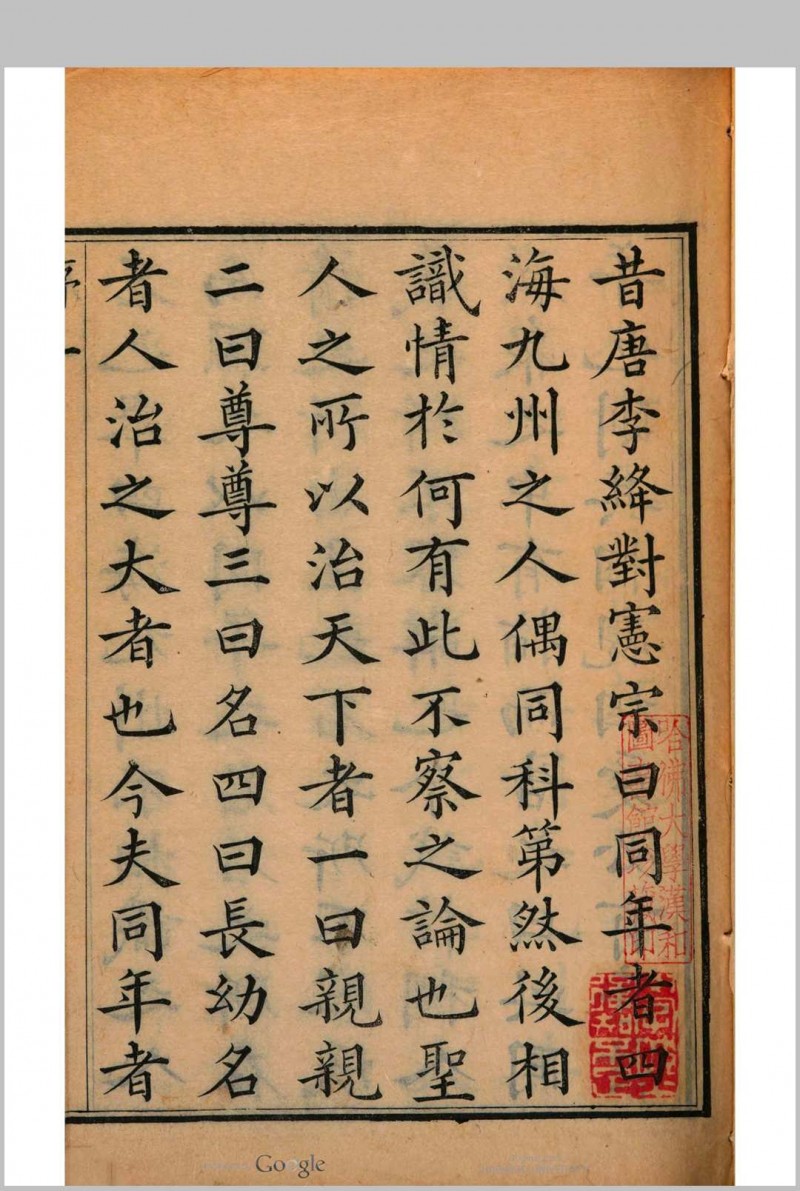 昔唐李絳對憲宗曰同年者四
海九州之人偶同科第然後相
識情於何有此不察之論也聖
人之所以治天下者一曰親親
二曰尊尊三曰名四曰長幼名
者人治之大者也今夫同年者
序 一
哈佛大學漢和
圖書館珍藏印
Google